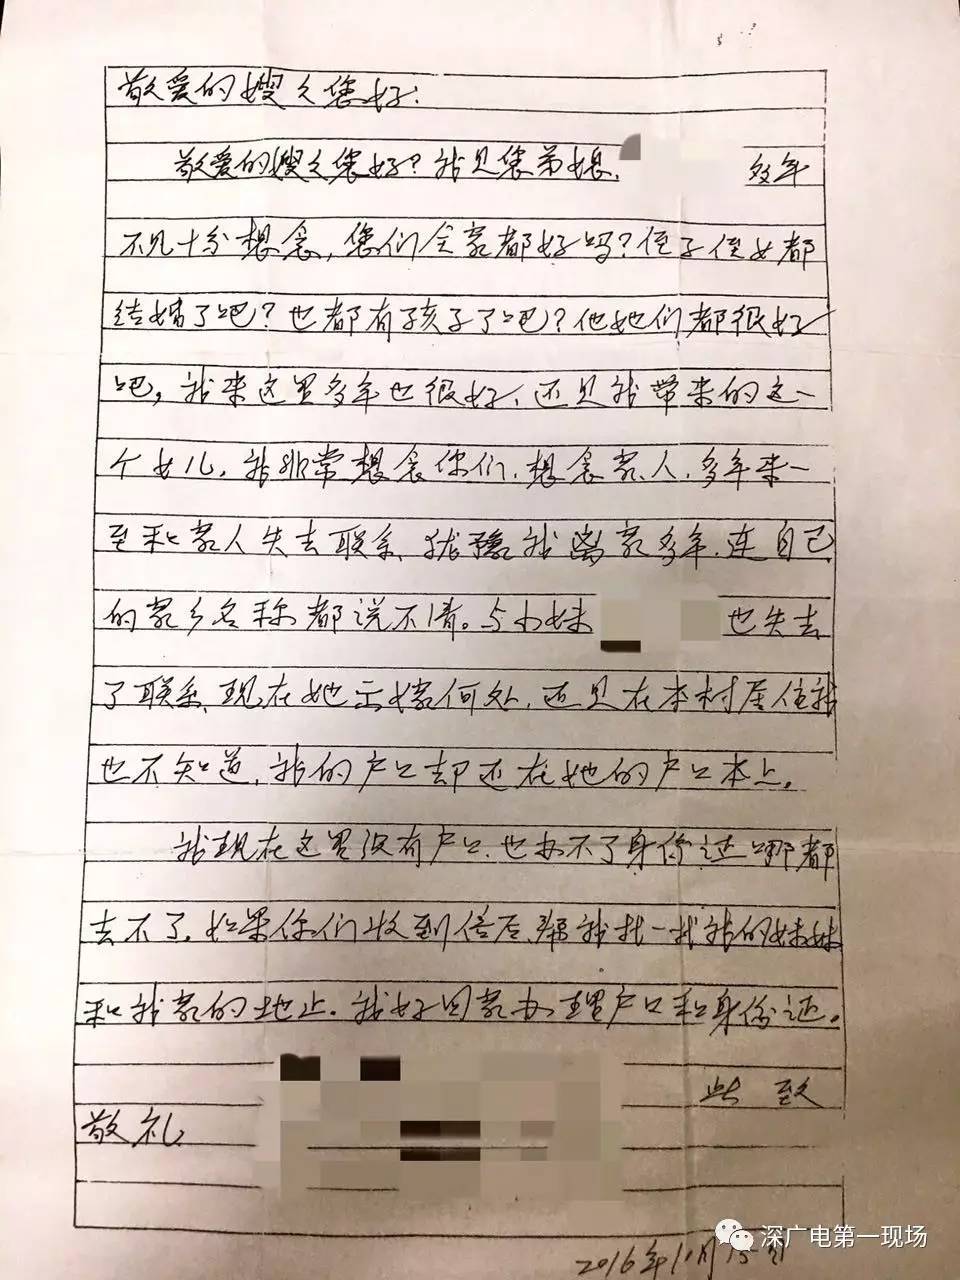 敬爱的嫂之您好.
敬爱的嫂之您好?我是您弟媳, 多年
不见十分想念,您们全家都好吗?侄子侄女都
结婚了吧?也都有孩子了吧?他她们都很好
吧,我来这里多年也很好、还是我带来的这一
个女儿,我非常想念你们.想念家人.多年来一
至和家人失去联系、犹豫我离家多年.连自己
的家乡名称都说不清。与小妹 也失去
了联系、现在她嫁何处.还是在本村居住我
也不知道,我的户口却还在她的户口本上,
我现在这里没有户口.也办不了身份证哪都
去不了,如果你们收到信后、帮我找一找我的妹妹
和我家的地止.我好回家办理户口和身份证。
此 致
敬礼
2016年10月15日
深广电第一现场